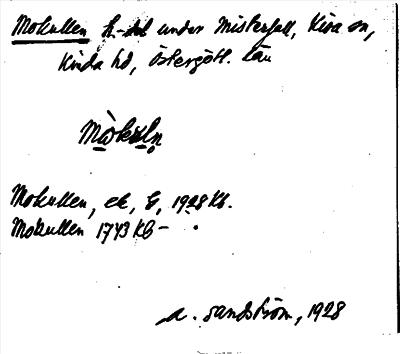 Mokullen h-del under Misterfall, Kisa sn,
Kinda hd, Östergötl. län
Mokullen, ek, G, 1928 Kb.
Mokullen 1743 Kb –
A. Sandström, 1928